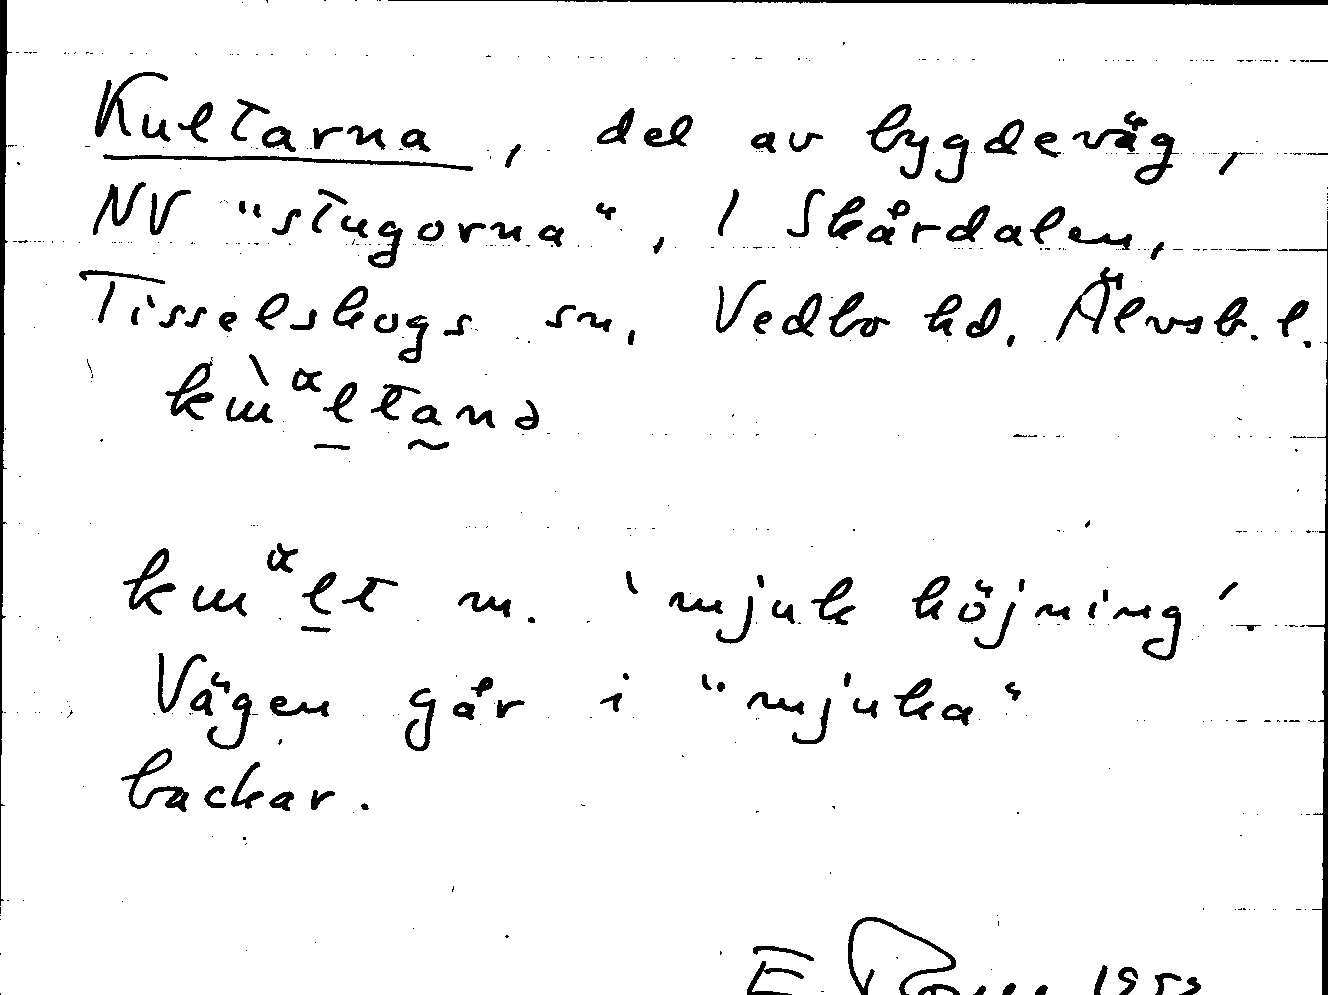 Kultarna, del av bygdeväg,
NV "stugorna", I Skårdalen,
Tisselskogs sn, Vedbo hd. Älvsb. l.
kɯ̀ᵅl̠ta̰nə
kɯᵅl̠t m. 'mjuk höjning'.
Vägen går i "mjuka"
backar.
E.